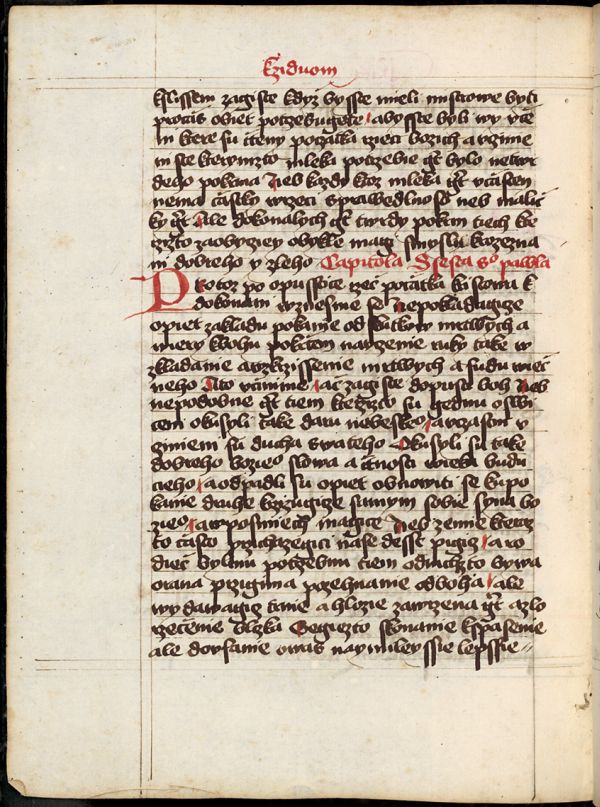 k zíduom
k slissem zagiste kdyz byste mieli mistrowe byti
pro czas opiet potrzebugete abyste byli wy vcze
ni ktere su cteny poczatka rzieci bozich a vczinie
ni ste kterymzto mleka potrzebie gt bylo ne twr
deho pokrma Neb kazdy ktoz mleka gt vczasten
nema czastky w rzeci sprawedlnosti neb malicz
ky gt Ale dokonalych gt twrdy pokrm tiech kte
rzizto za obyczey obykle magi smysly k rozezna
ni dobreho y zleho Capitola Ssesta sº pawla
Protoz po opustice rzecz poczatka kristowa k
dokonani wznesme se nepokladagice
opiet zakladu pokanie od skutkow mrtwych a
wiery k bohu pokrtem naurzenie ruky take w
zkladanie a wzkrzissenie mrtwych a sudu wiecz
neho A to vczinime acz zagiste dopusti boh Neb
nepodobne gt tiem kterzizto su gednu oswi
ceni okusyli take daru nebeskeº a vczastni v
czinieni su ducha swateho Okusyli su take
dobreho bozieº slowa a ctnosti wieka budu
cieho a odpadli su opiet obnowiti se k po
kanie druhe krzizugice samym sobie syna bo
zieº a w posmiech magice Neb zemie kterz
to czasto przichazegici na se desst pigic a ro
diec bylinu potrzebnu tiem od nichzto bywa
orana przigima pozehnanie od boha ale
wydawagic trnie a hlozie zawrzena gt a zlo
rzeczenie blizka Gegiezto skonanie k spalenie
ale doufame o was naymileyssie lepssie